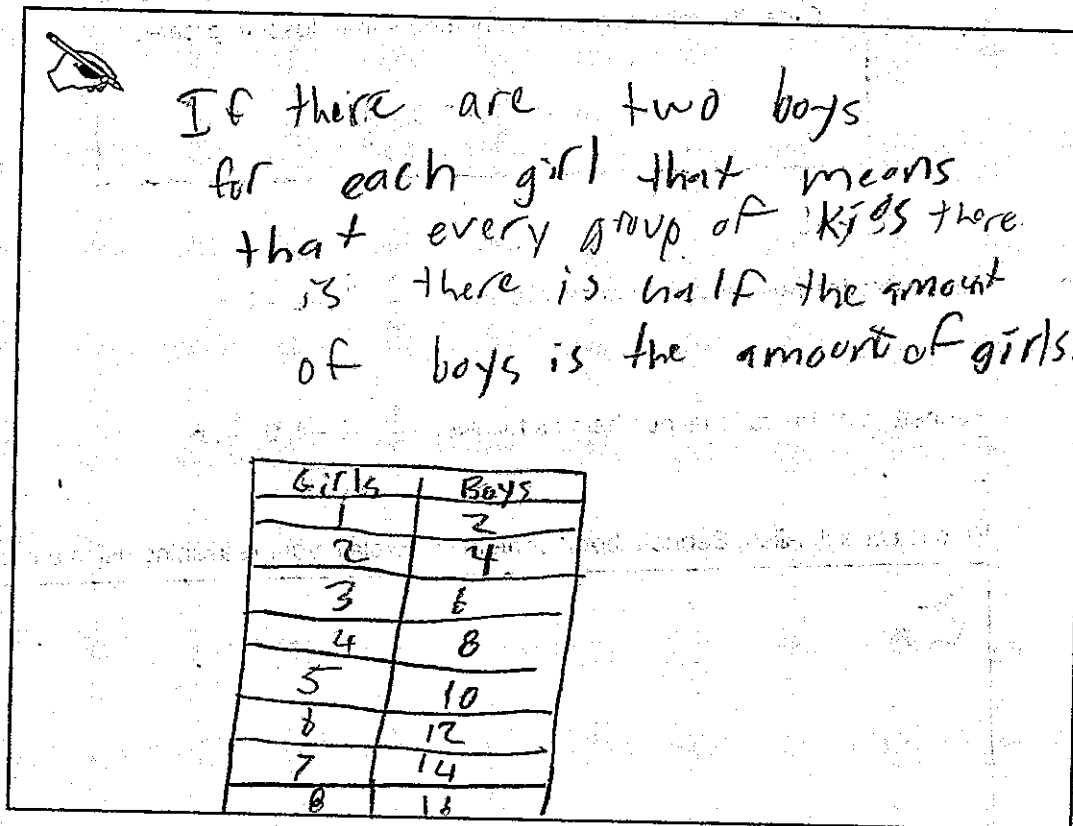 If there are two boys
for each girl that means
that every group of kids there
is there is half the amount
of boys is the amount of girls.
Girls Boys
1 2
2 4
3 6
4 8
5 10
6 12
7 14
8 16